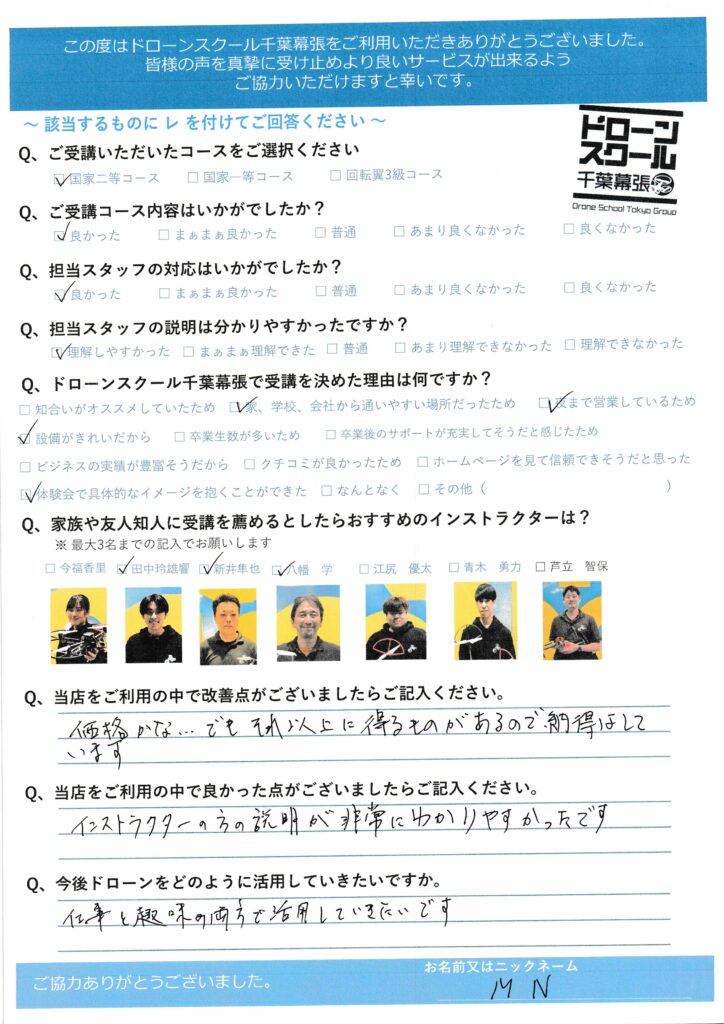 この度はドローンスクール千葉幕張をご利用いただきありがとうございました。
皆様の声を真摯に受け止めより良いサービスが出来るよう
ご協力いただけますと幸いです。
～ 該当するものに レ を付けてご回答ください ～
ドローン
スクール
千葉幕張
Drone School Tokyo Group
Q、ご受講いただいたコースをご選択ください
☑国家二等コース □国家一等コース □回転翼3級コース
Q、ご受講コース内容はいかがでしたか？
☑良かった □まぁまぁ良かった □普通 □あまり良くなかった □良くなかった
Q、担当スタッフの対応はいかがでしたか？
☑良かった □まぁまぁ良かった □普通 □あまり良くなかった □良くなかった
Q、担当スタッフの説明は分かりやすかったですか？
☑理解しやすかった □まぁまぁ理解できた □普通 □あまり理解できなかった □理解できなかった
Q、ドローンスクール千葉幕張で受講を決めた理由は何ですか？
□知合いがオススメしていたため ☑家、学校、会社から通いやすい場所だったため ☑夜まで営業しているため
☑設備がきれいだから □卒業生数が多いため □卒業後のサポートが充実してそうだと感じたため
□ビジネスの実績が豊富そうだから □クチコミが良かったため □ホームページを見て信頼できそうだと思った
☑体験会で具体的なイメージを抱くことができた □なんとなく □その他（ ）
Q、家族や友人知人に受講を薦めるとしたらおすすめのインストラクターは？
※最大3名までの記入でお願いします
□今福香里 ☑田中玲雄響 ☑新井隼也 ☑八幡 学 □江尻 優太 □青木 勇力 □芦立 智保
Q、当店をご利用の中で改善点がございましたらご記入ください。
価格かな…でもそれ以上に得るものがあるので納得はして
います
Q、当店をご利用の中で良かった点がございましたらご記入ください。
インストラクターの方の説明が非常にわかりやすかったです
Q、今後ドローンをどのように活用していきたいですか。
仕事と趣味の両方で活用していきたいです
ご協力ありがとうございました。
お名前又はニックネーム
M N